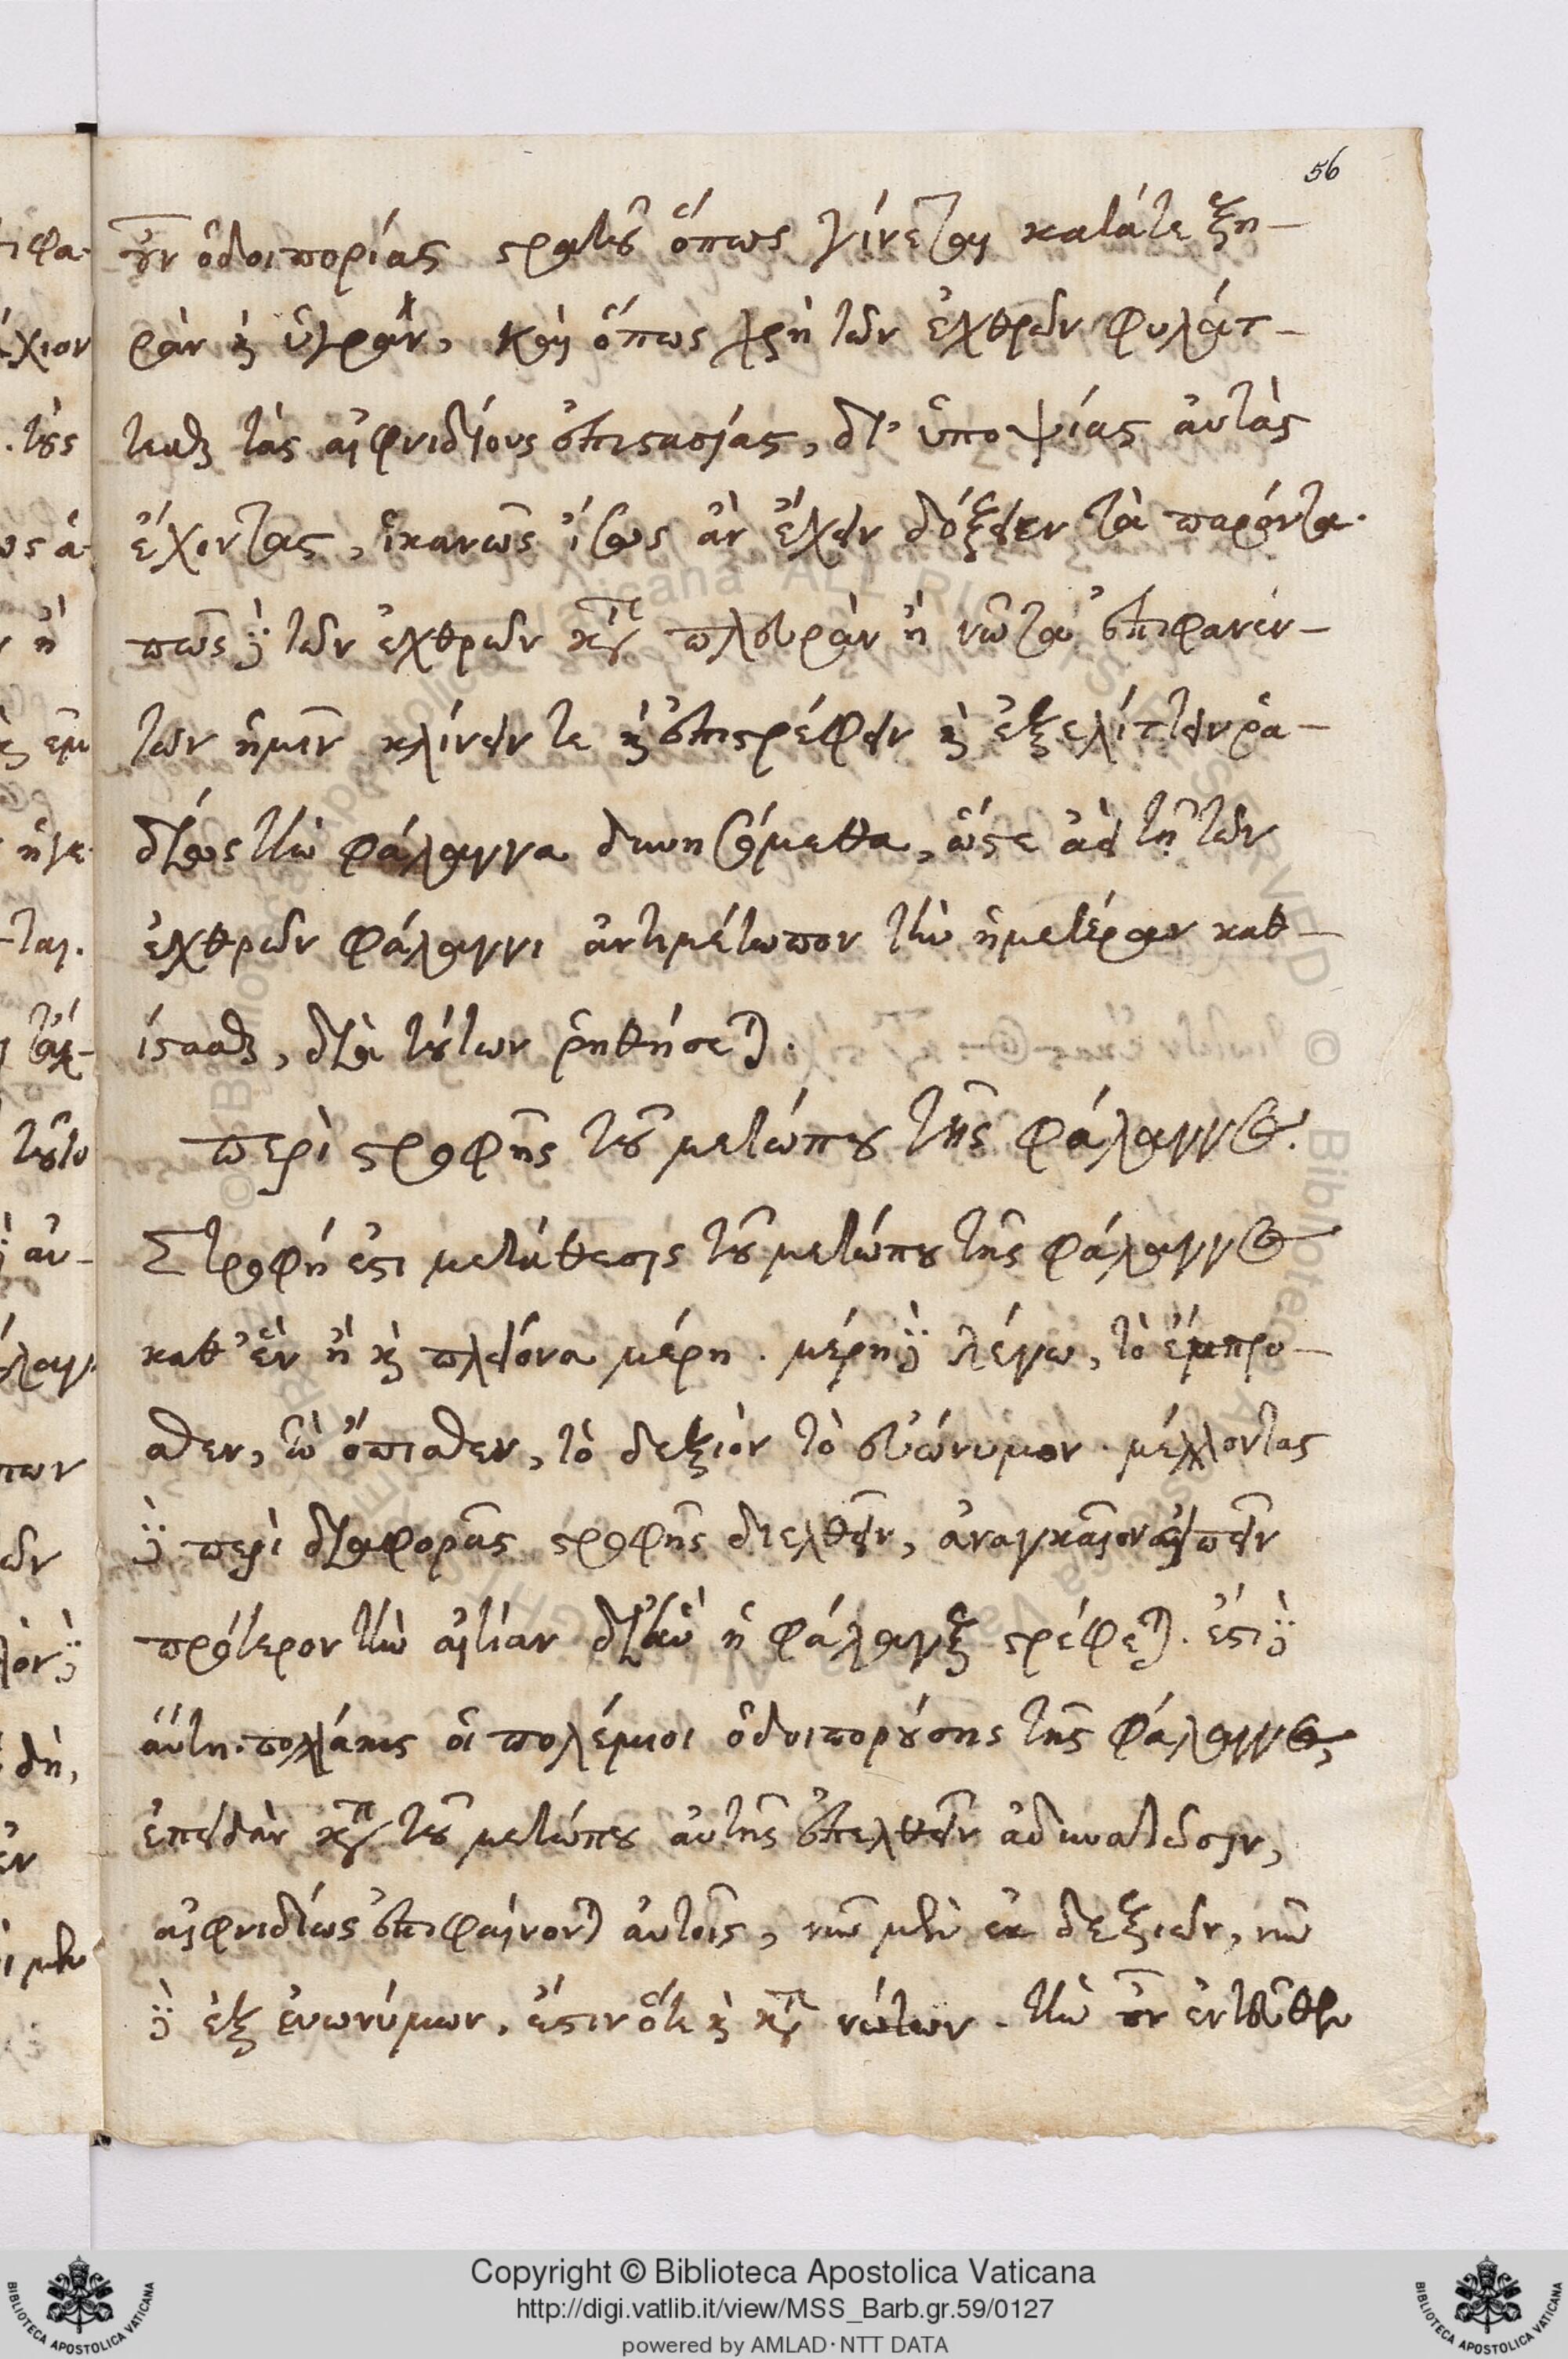 56
οὖν ὁδοιπορίας στρατοῦ ὅπως γίνεται κατά τε ξη-
ρὰν καὶ ὑγρὰν, καὶ ὅπως χρὴ τῶν ἐχθρῶν φυλάτ-
τεσθαι τὰς αἰφνιδίους ἐπιστασίας, δι' ὑποψίας αὐτὰς
ἔχοντας, ἱκανῶς ἴσως ἂν ἔχειν δόξειεν τὰ παρόντα.
πῶς δὲ τῶν ἐχθρῶν κατὰ πλευρὰν ἢ νῶτα ἐπιφανέν-
των ἡμῖν κλίνειν τε καὶ ἐπιστρέφειν καὶ ἐξελίττειν ῥα-
δίως τὴν φάλαγγα δυνησόμεθα, ὥστε ἀεὶ τῇ τῶν
ἐχθρῶν φάλαγγι ἀντιμέτωπον τὴν ἡμετέραν καθ-
ίστασθαι, διὰ τούτων ῥηθήσεται.
περὶ στροφῆς τοῦ μετώπου τῆς φάλαγγος.
Στροφή ἐστι μετάθεσις τοῦ μετώπου τῆς φάλαγγος
καθ' ἓν ἢ καὶ πλείονα μέρη. μέρη δὲ λέγω, τὸ ἔμπρο-
σθεν, τὸ ὄπισθεν, τὸ δεξιὸν τὸ εὐώνυμον. μέλλοντας
δὲ περὶ διαφορᾶς στροφῆς διελθεῖν, ἀναγκαῖον εἰπεῖν
πρότερον τὴν αἰτίαν δι' ἣν ἡ φάλαγξ στρέφεται. ἔστι δὲ
αὕτη. πολλάκις οἱ πολέμιοι ὁδοιπορούσης τῆς φάλαγγος,
ἐπειδὰν κατὰ τοῦ μετώπου αὐτῆς ἐπελθεῖν ἀδυνατῶσιν,
αἰφνιδίως ἐπιφαίνονται αὐτοῖς, νῦν μὲν ἐκ δεξιῶν, νῦν
δὲ ἐξ εὐωνύμων, ἔστιν ὅτε καὶ κατὰ νώτων. τὴν οὖν ἐντεῦθεν
Copyright © Biblioteca Apostolica Vaticana
http://digi.vatlib.it/view/MSS_Barb.gr.59/0127
powered by AMLAD·NTT DATA